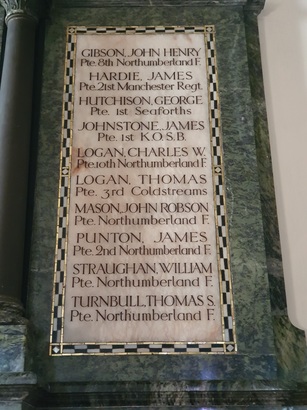 GIBSON, JOHN HENRY
Pte. 8th Northumberland F.
HARDIE, JAMES
Pte. 21st Manchester Regt.
HUTCHISON, GEORGE
Pte. 1st Seaforths
JOHNSTONE, JAMES
Pte. 1st K.O.S.B.
LOGAN, CHARLES W.
Pte. 10th Northumberland F.
LOGAN, THOMAS
Pte. 3rd Coldstreams
MASON, JOHN ROBSON
Pte. Northumberland F.
PUNTON, JAMES
Pte. 2nd Northumberland F.
STRAUGHAN, WILLIAM
Pte. Northumberland F.
TURNBULL, THOMAS S.
Pte. Northumberland F.